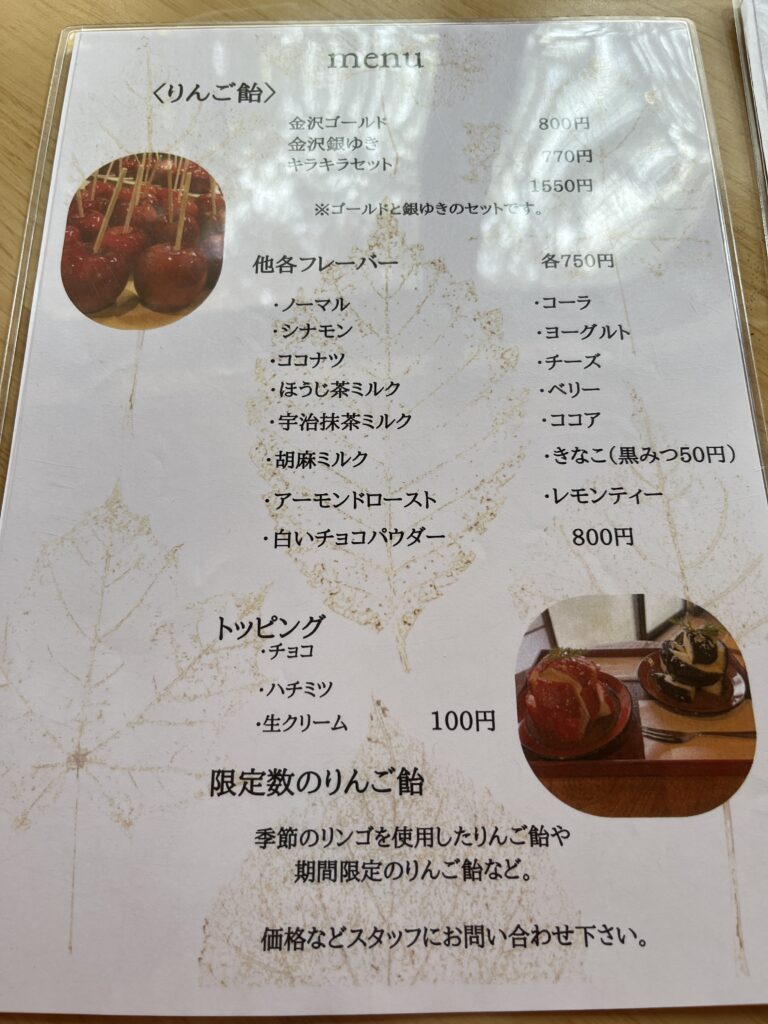 menu
〈りんご飴〉
金沢ゴールド 800円
金沢銀ゆき 770円
キラキラセット 1550円
※ゴールドと銀ゆきのセットです。
他各フレーバー 各750円
・ノーマル ・コーラ
・シナモン ・ヨーグルト
・ココナツ ・チーズ
・ほうじ茶ミルク ・ベリー
・宇治抹茶ミルク ・ココア
・胡麻ミルク ・きなこ(黒みつ50円)
・アーモンドロースト ・レモンティー
・白いチョコパウダー 800円
トッピング
・チョコ
・ハチミツ
・生クリーム 100円
限定数のりんご飴
季節のリンゴを使用したりんご飴や
期間限定のりんご飴など。
価格などスタッフにお問い合わせ下さい。